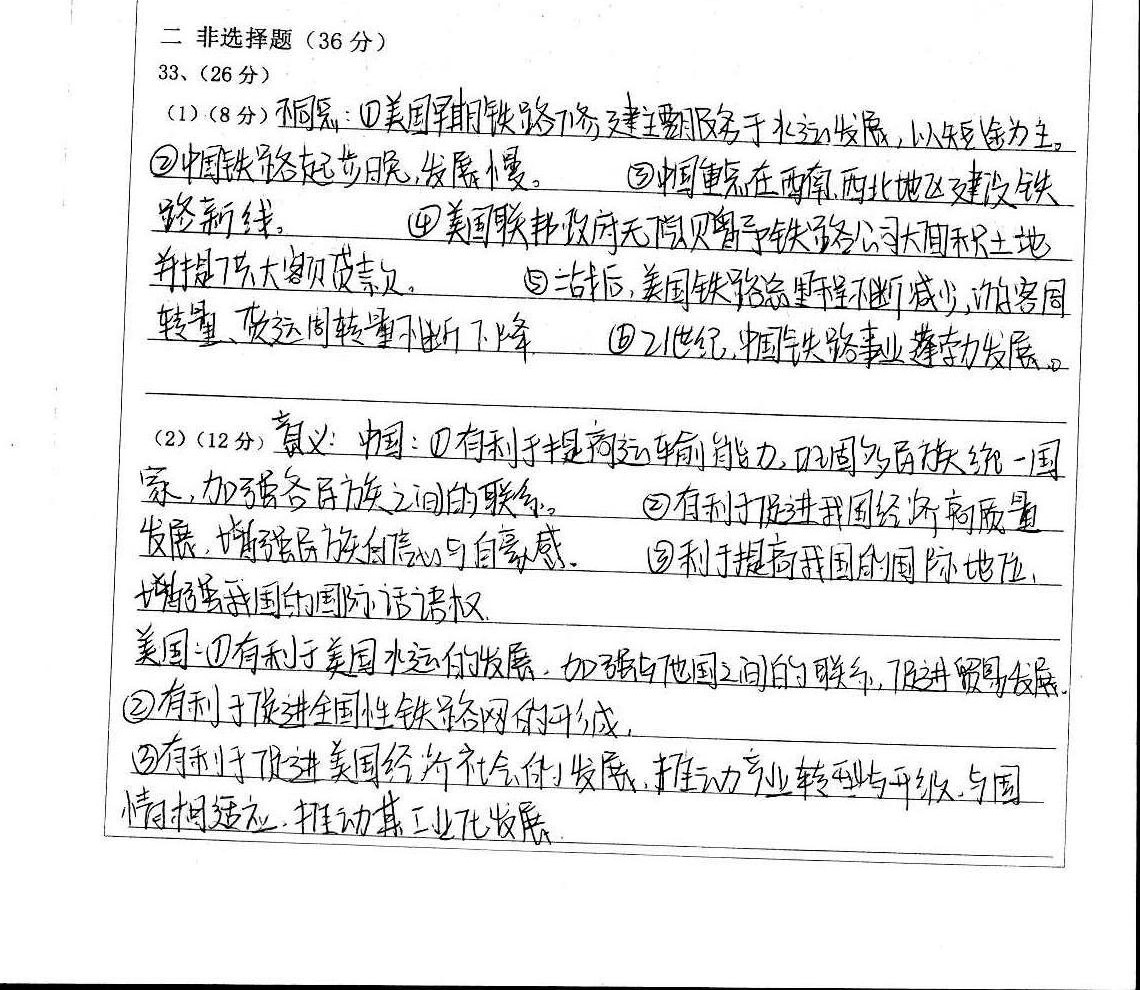 二 非选择题（36分）
33、（26分）
（1）（8分）不同点：①美国早期铁路修建主要服务于水运发展，以短途为主。
②中国铁路起步晚，发展慢。 ③中国重点在西南、西北地区建设铁
路新线。 ④美国联邦政府无偿赠予铁路公司大面积土地
并提供大额贷款。 ⑤二战后，美国铁路总里程不断减少，旅客周
转量、货运周转量不断下降 ⑥21世纪，中国铁路事业蓬勃发展。
（2）（12分）意义：中国：①有利于提高运输能力，巩固多民族统一国
家，加强各民族之间的联系。 ②有利于促进我国经济高质量
发展，增强民族自信心与自豪感。 ③利于提高我国的国际地位，
增强我国的国际话语权.
美国：①有利于美国水运的发展，加强与他国之间的联系，促进贸易发展.
②有利于促进全国性铁路网的形成.
③有利于促进美国经济社会的发展，推动产业转型与升级，与国
情相适应，推动其工业化发展.